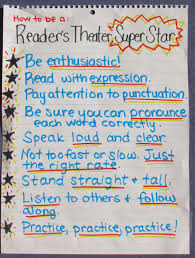 How to be a:
Reader's Theater Super Star
Be enthusiastic!
Read with expression.
Pay attention to punctuation.
Be sure you can pronounce
each word correctly.
Speak loud and clear.
Not too fast or slow. Just
the right rate.
Stand straight & tall.
Listen to others & follow
along.
Practice, practice, practice!